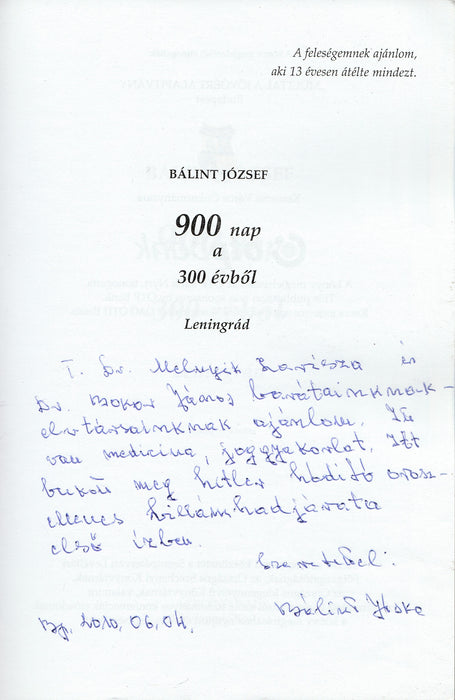 A feleségemnek ajánlom,
aki 13 évesen átélte mindezt.
BÁLINT JÓZSEF
900 nap
a
300 évből
Leningrád
T. Dr. Melnyik Larisza és
Dr. Bokor János barátainknak-
elvtársainknak ajánlom. Itt
van medicina, joggyakorlat. Itt
bukott meg hitler hódító orosz-
ellenes villámhadjárata
első ízben.
Szeretettel:
Bálint
Bp. 2010. 06. 04.